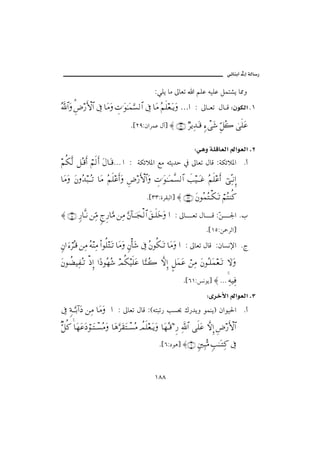 رسالة إلى ابنائي
ومما يشتمل عليه علم الله تعالى ما يلي:
١. الكون: قال تعالى : ﴿... وَيَعْلَمُ مَا فِي السَّمَاوَاتِ وَمَا فِي الْأَرْضِ وَاللَّهُ
عَلَى كُلِّ شَيْءٍ قَدِيرٌ ﴾ [آل عمران:٢٩].
٢. العوالم العاقلة وهي:
أ. الملائكة: قال تعالى في حديثه مع الملائكة : ﴿... قَالَ أَلَمْ أَقُل لَّكُمْ
إِنِّي أَعْلَمُ غَيْبَ السَّمَاوَاتِ وَالْأَرْضِ وَأَعْلَمُ مَا تُبْدُونَ وَمَا
كُنتُمْ تَكْتُمُونَ ﴾ [البقرة:٣٣].
ب. الجن: قال تعالى : ﴿ وَخَلَقَ الْجَانَّ مِن مَّارِجٍ مِّن نَّارٍ ﴾
[الرحمن:١٥].
ج. الإنسان: قال تعالى : ﴿ وَمَا تَكُونُ فِي شَأْنٍ وَمَا تَتْلُو مِنْهُ مِن قُرْآنٍ
وَلَا تَعْمَلُونَ مِنْ عَمَلٍ إِلَّا كُنَّا عَلَيْكُمْ شُهُودًا إِذْ تُفِيضُونَ
فِيهِ ... ﴾ [يونس:٦١].
٣. العوالم الأخرى:
أ. الحيوان (ينمو ويدرك بحسب رتبته): قال تعالى : ﴿ وَمَا مِن دَابَّةٍ فِي
الْأَرْضِ إِلَّا عَلَى اللَّهِ رِزْقُهَا وَيَعْلَمُ مُسْتَقَرَّهَا وَمُسْتَوْدَعَهَا كُلٌّ
فِي كِتَابٍ مُّبِينٍ ﴾ [هود:٦].
١٨٨